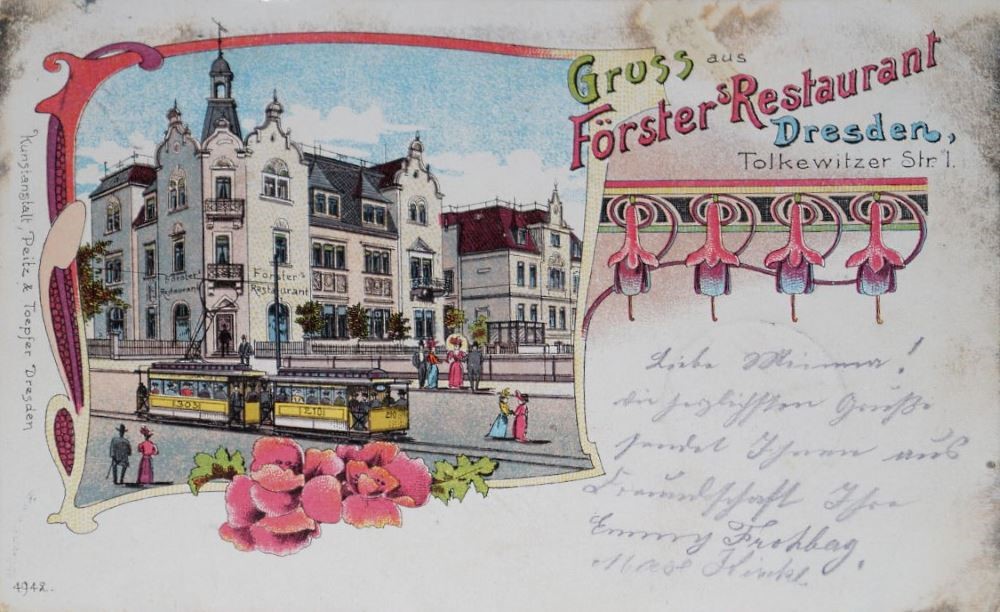 Gruss aus
Försters Restaurant
Dresden,
Tolkewitzer Str. 1.
Kunstanstalt, Peitz & Toepfer Dresden
Förster's
Restaurant
Förster's
Restaurant
303
210
210
Liebe Minna!
die herzlichsten Grüße
sendet Ihnen aus
Freundschaft Ihre
Emmy Frohbag.
Max
4942.